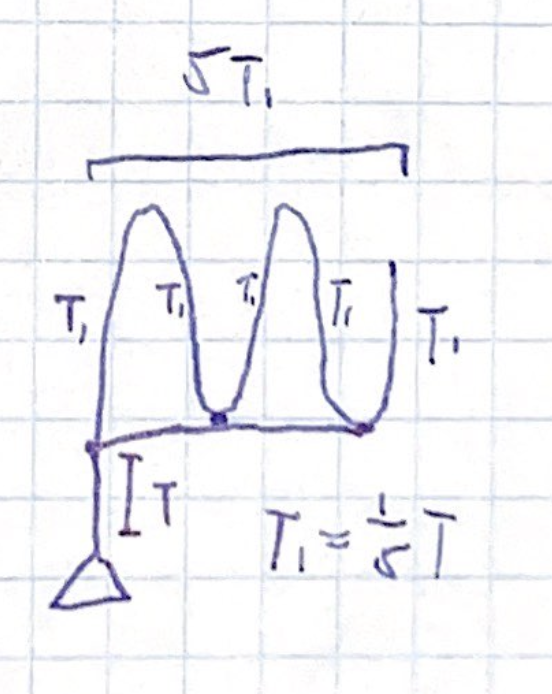 5T₁
T₁ T₁ T₁ T₁ T₁
T T₁ = 1/5 T